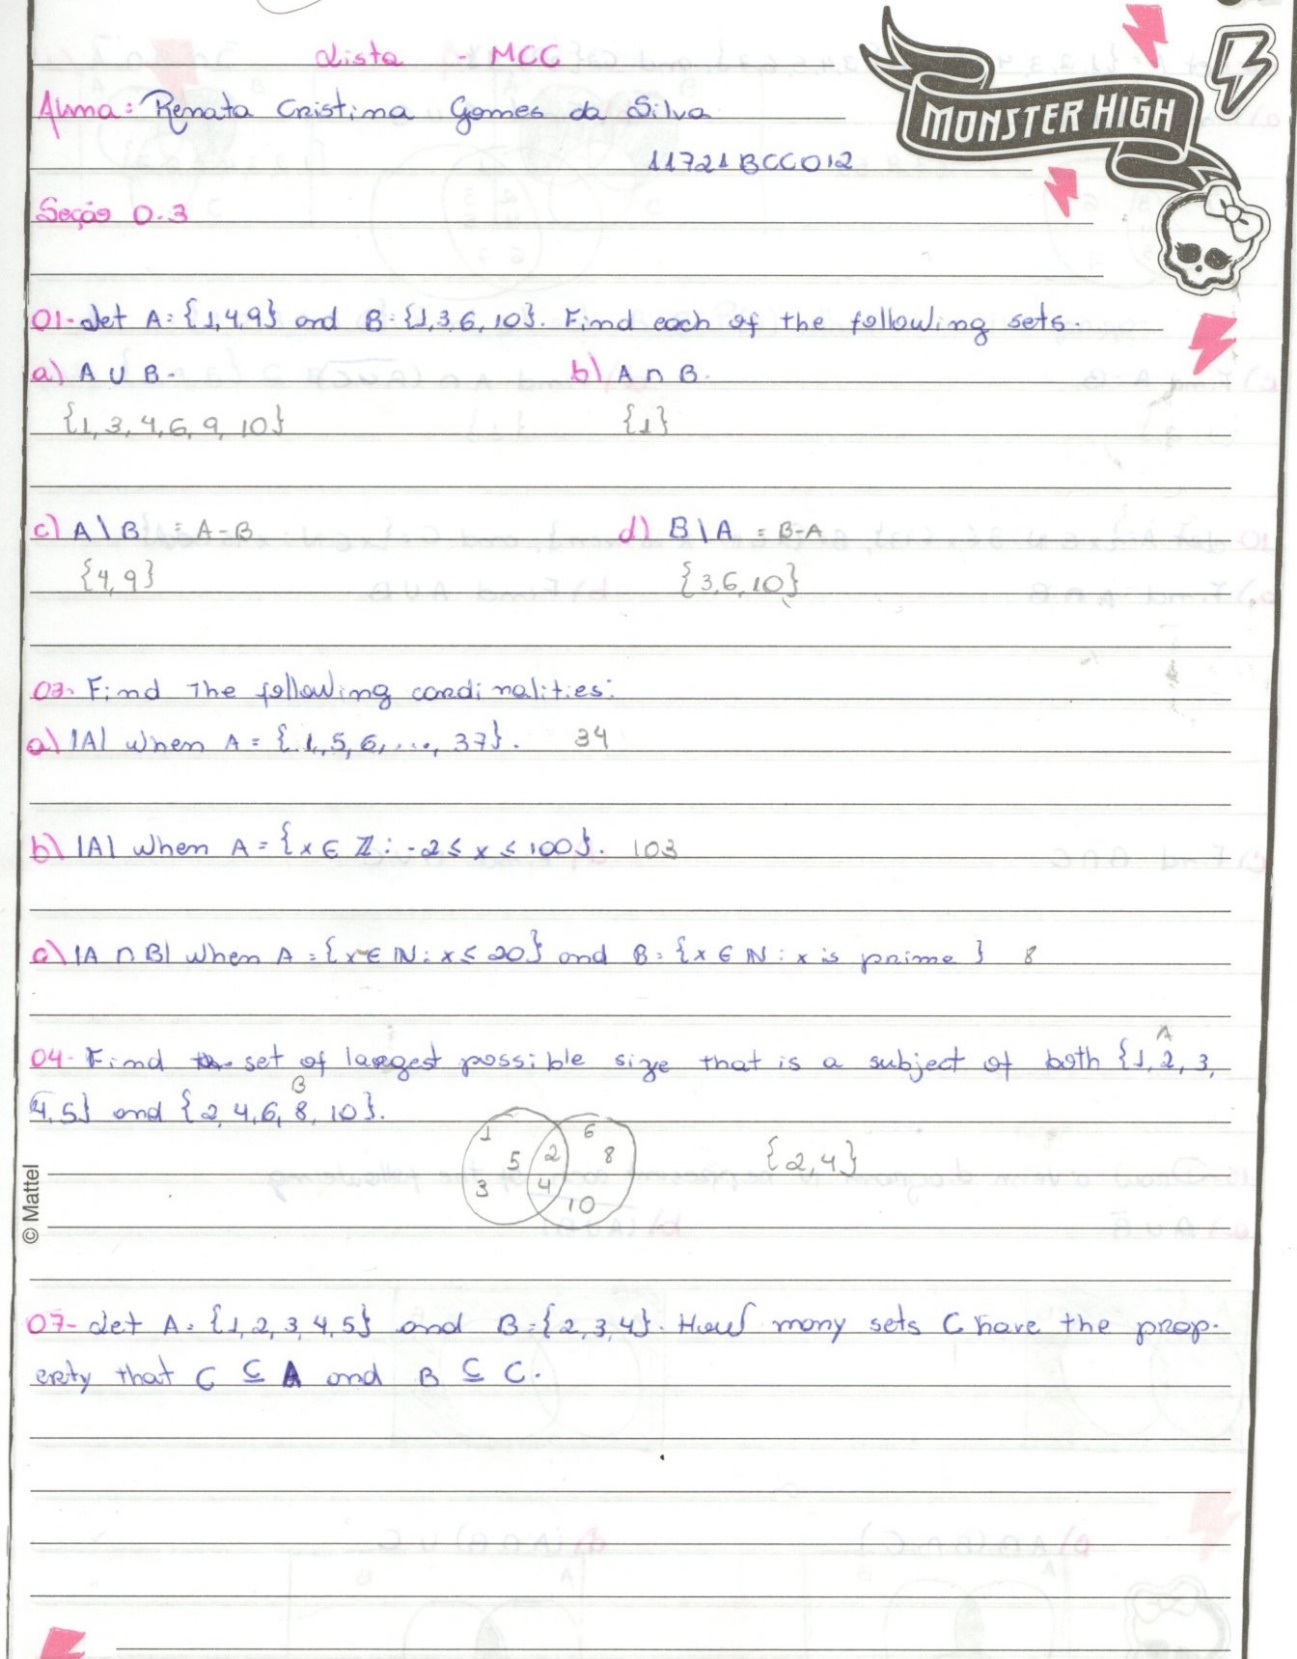 Lista - MCC
MONSTER HIGH
Aluna: Renata Cristina Gomes da Silva
11721BCC012
Seção 0.3
01- Let A = {1,4,9} and B = {1,3,6,10}. Find each of the following sets.
a) A ∪ B. b) A ∩ B.
{1, 3, 4, 6, 9, 10} {1}
c) A \ B = A - B d) B \ A = B - A
{4, 9} {3, 6, 10}
03- Find The following cardinalities:
a) |A| when A = {1, 5, 6, ..., 37}. 34
b) |A| when A = {x ∈ Z : -2 ≤ x ≤ 100}. 103
c) |A ∩ B| when A = {x ∈ N : x ≤ 20} and B = {x ∈ N : x is prime } 8
A
04- Find the set of largest possible size that is a subject of both {1, 2, 3,
B
4, 5} and {2, 4, 6, 8, 10}.
1 5 3 2 4 6 8 10 {2, 4}
07- Let A = {1, 2, 3, 4, 5} and B = {2, 3, 4}. How many sets C have the prop-
erty that C ⊆ A and B ⊆ C.
© Mattel